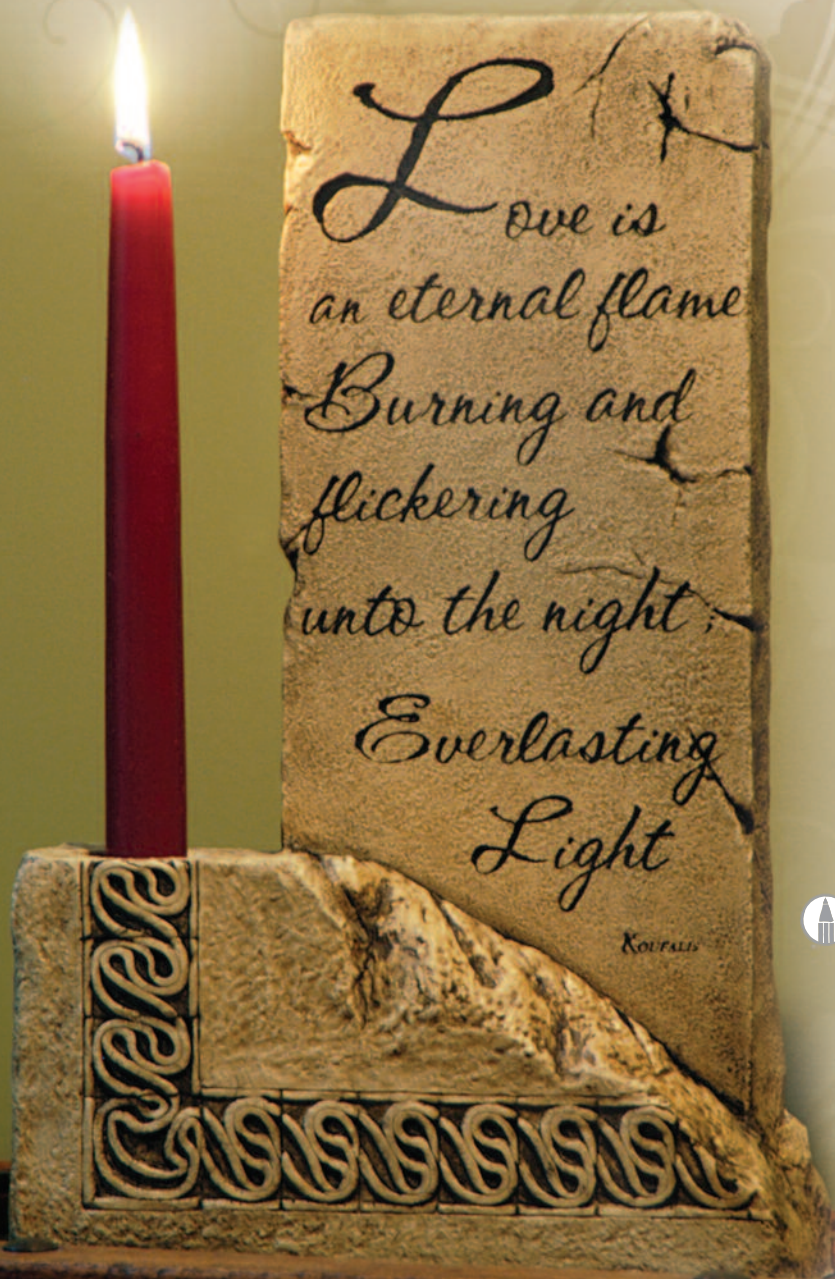 Love is
an eternal flame
Burning and
flickering
unto the night;
Everlasting
Light
Koufalis